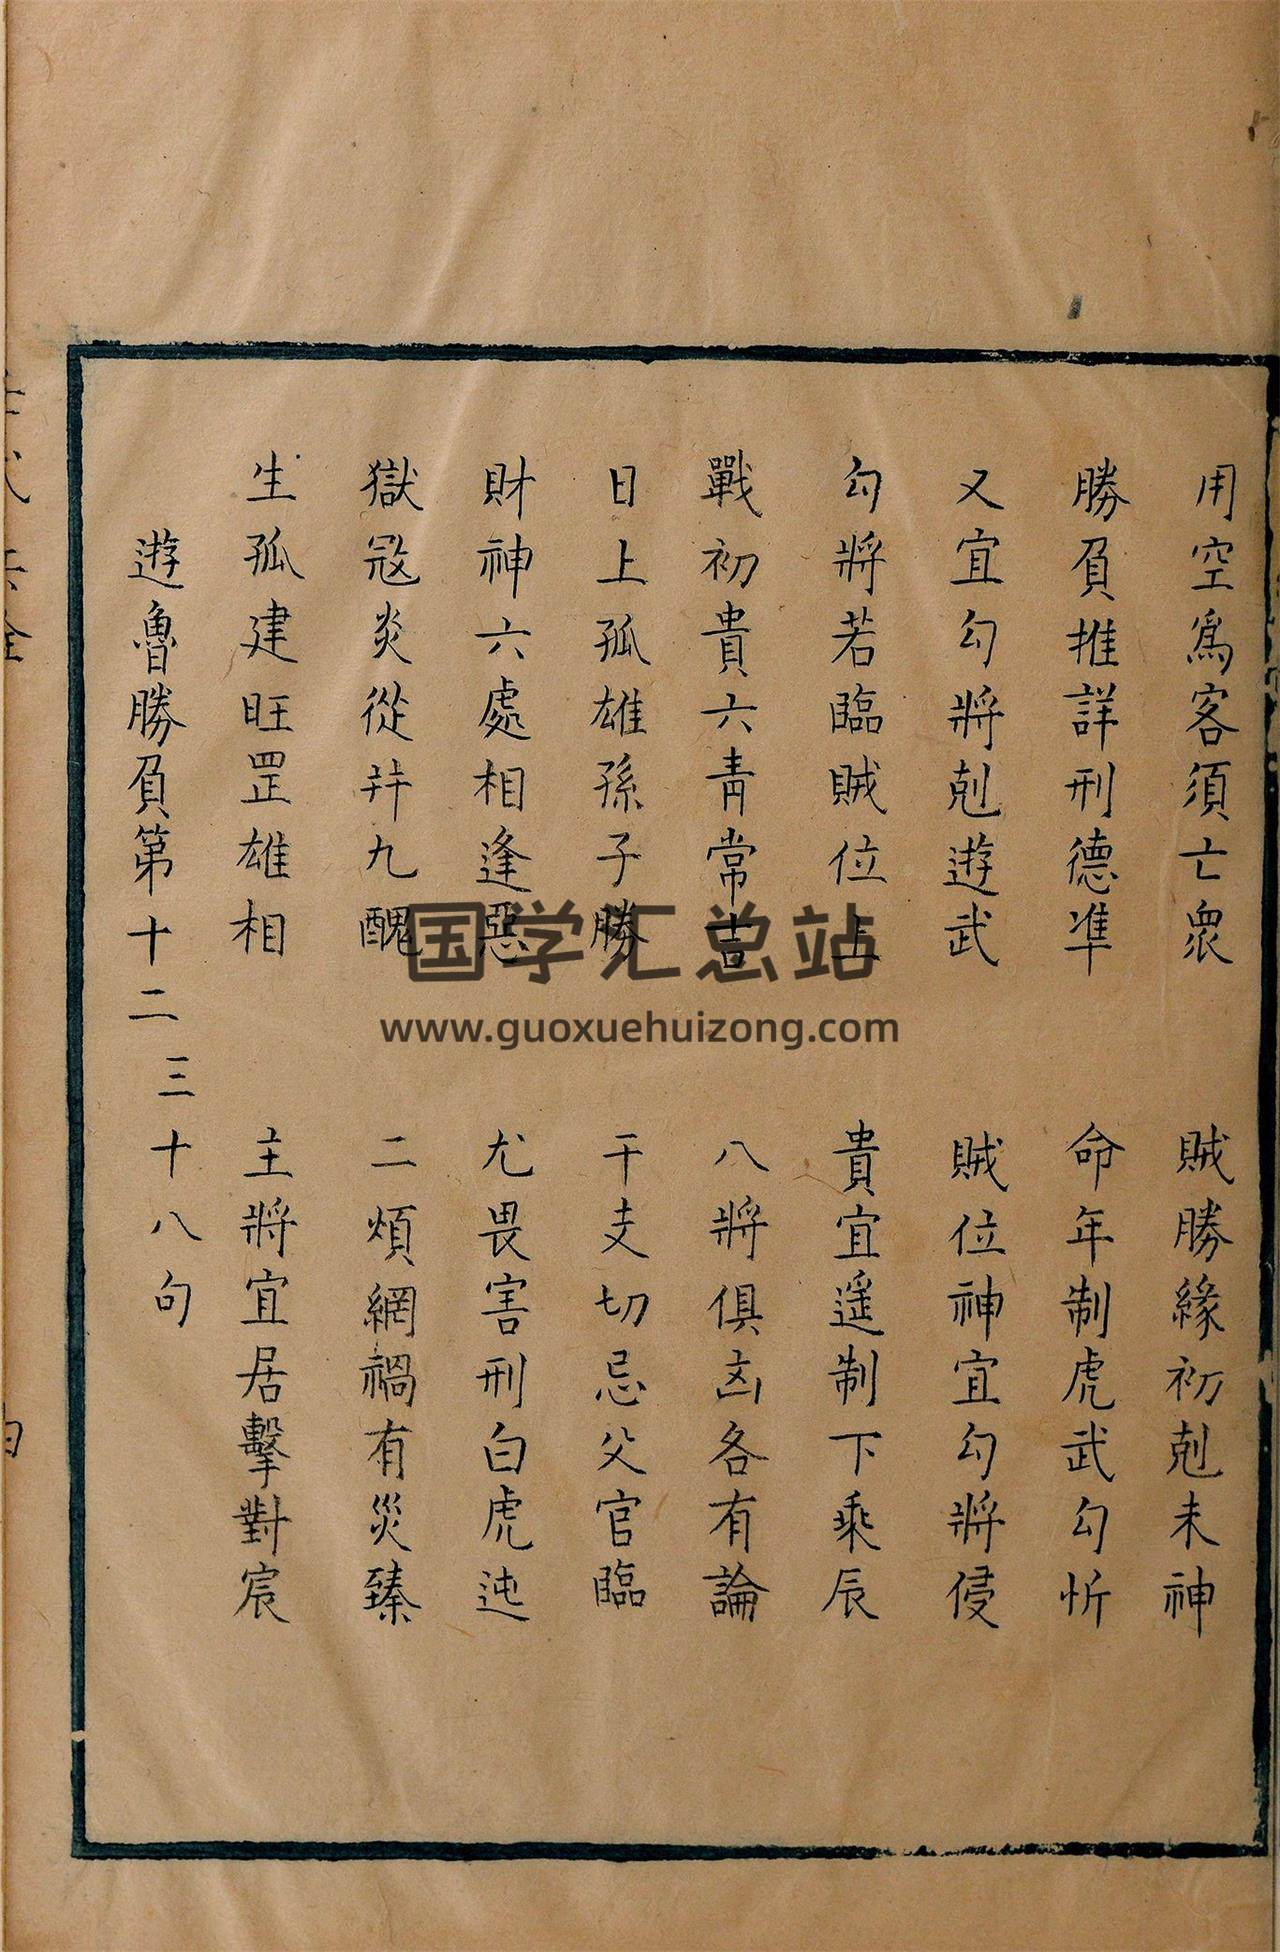 用空為客須亡衆　賊勝緣初剋未神
勝負推詳刑德凖　命年制虎武勾忻
又宜勾將剋遊武　賊位神宜勾將侵
勾將若臨賊位上　貴宜遥制下乘辰
戰初貴六青常吉　八將俱凶各有論
日上孤雄孫子勝　干支切忌父官臨
財神六處相逢惡　尤畏害刑白虎迍
獄冦炎從幷九醜　二煩網禍有災臻
生孤建旺罡雄相　主將宜居擊對宸
遊魯勝負第十二　三十八句
国学汇总站
www.guoxuehuizong.com